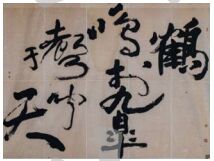 鶴
鳴於九皋
聲聞
于天